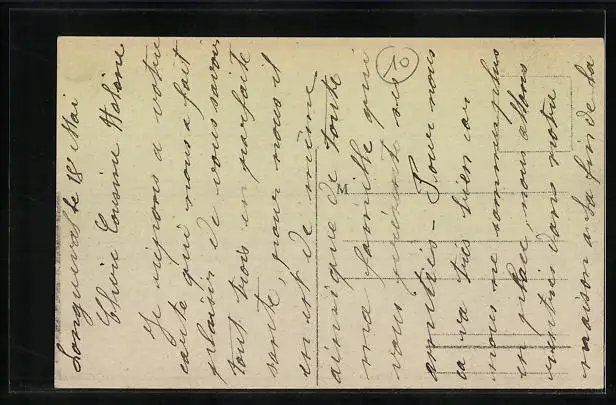 Longueval le 18 Mai
Chère Cousine Hélène
Je répons a votre
carte qui nous a fait
plaisir de vous savoir
tout trois en parfaite
santé, pour nous il
en est de même
ainsi que de toute
ma famille qui
vous présente ses
amitiés - Pour nous
ca va très bien car
nous ne sommes plus
en place, nous allons
rentrés dans notre
maison a la fin de la
M
20